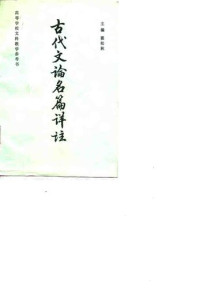 高等学校文科教学参考书
古代文论名篇详注
主编 霍松林